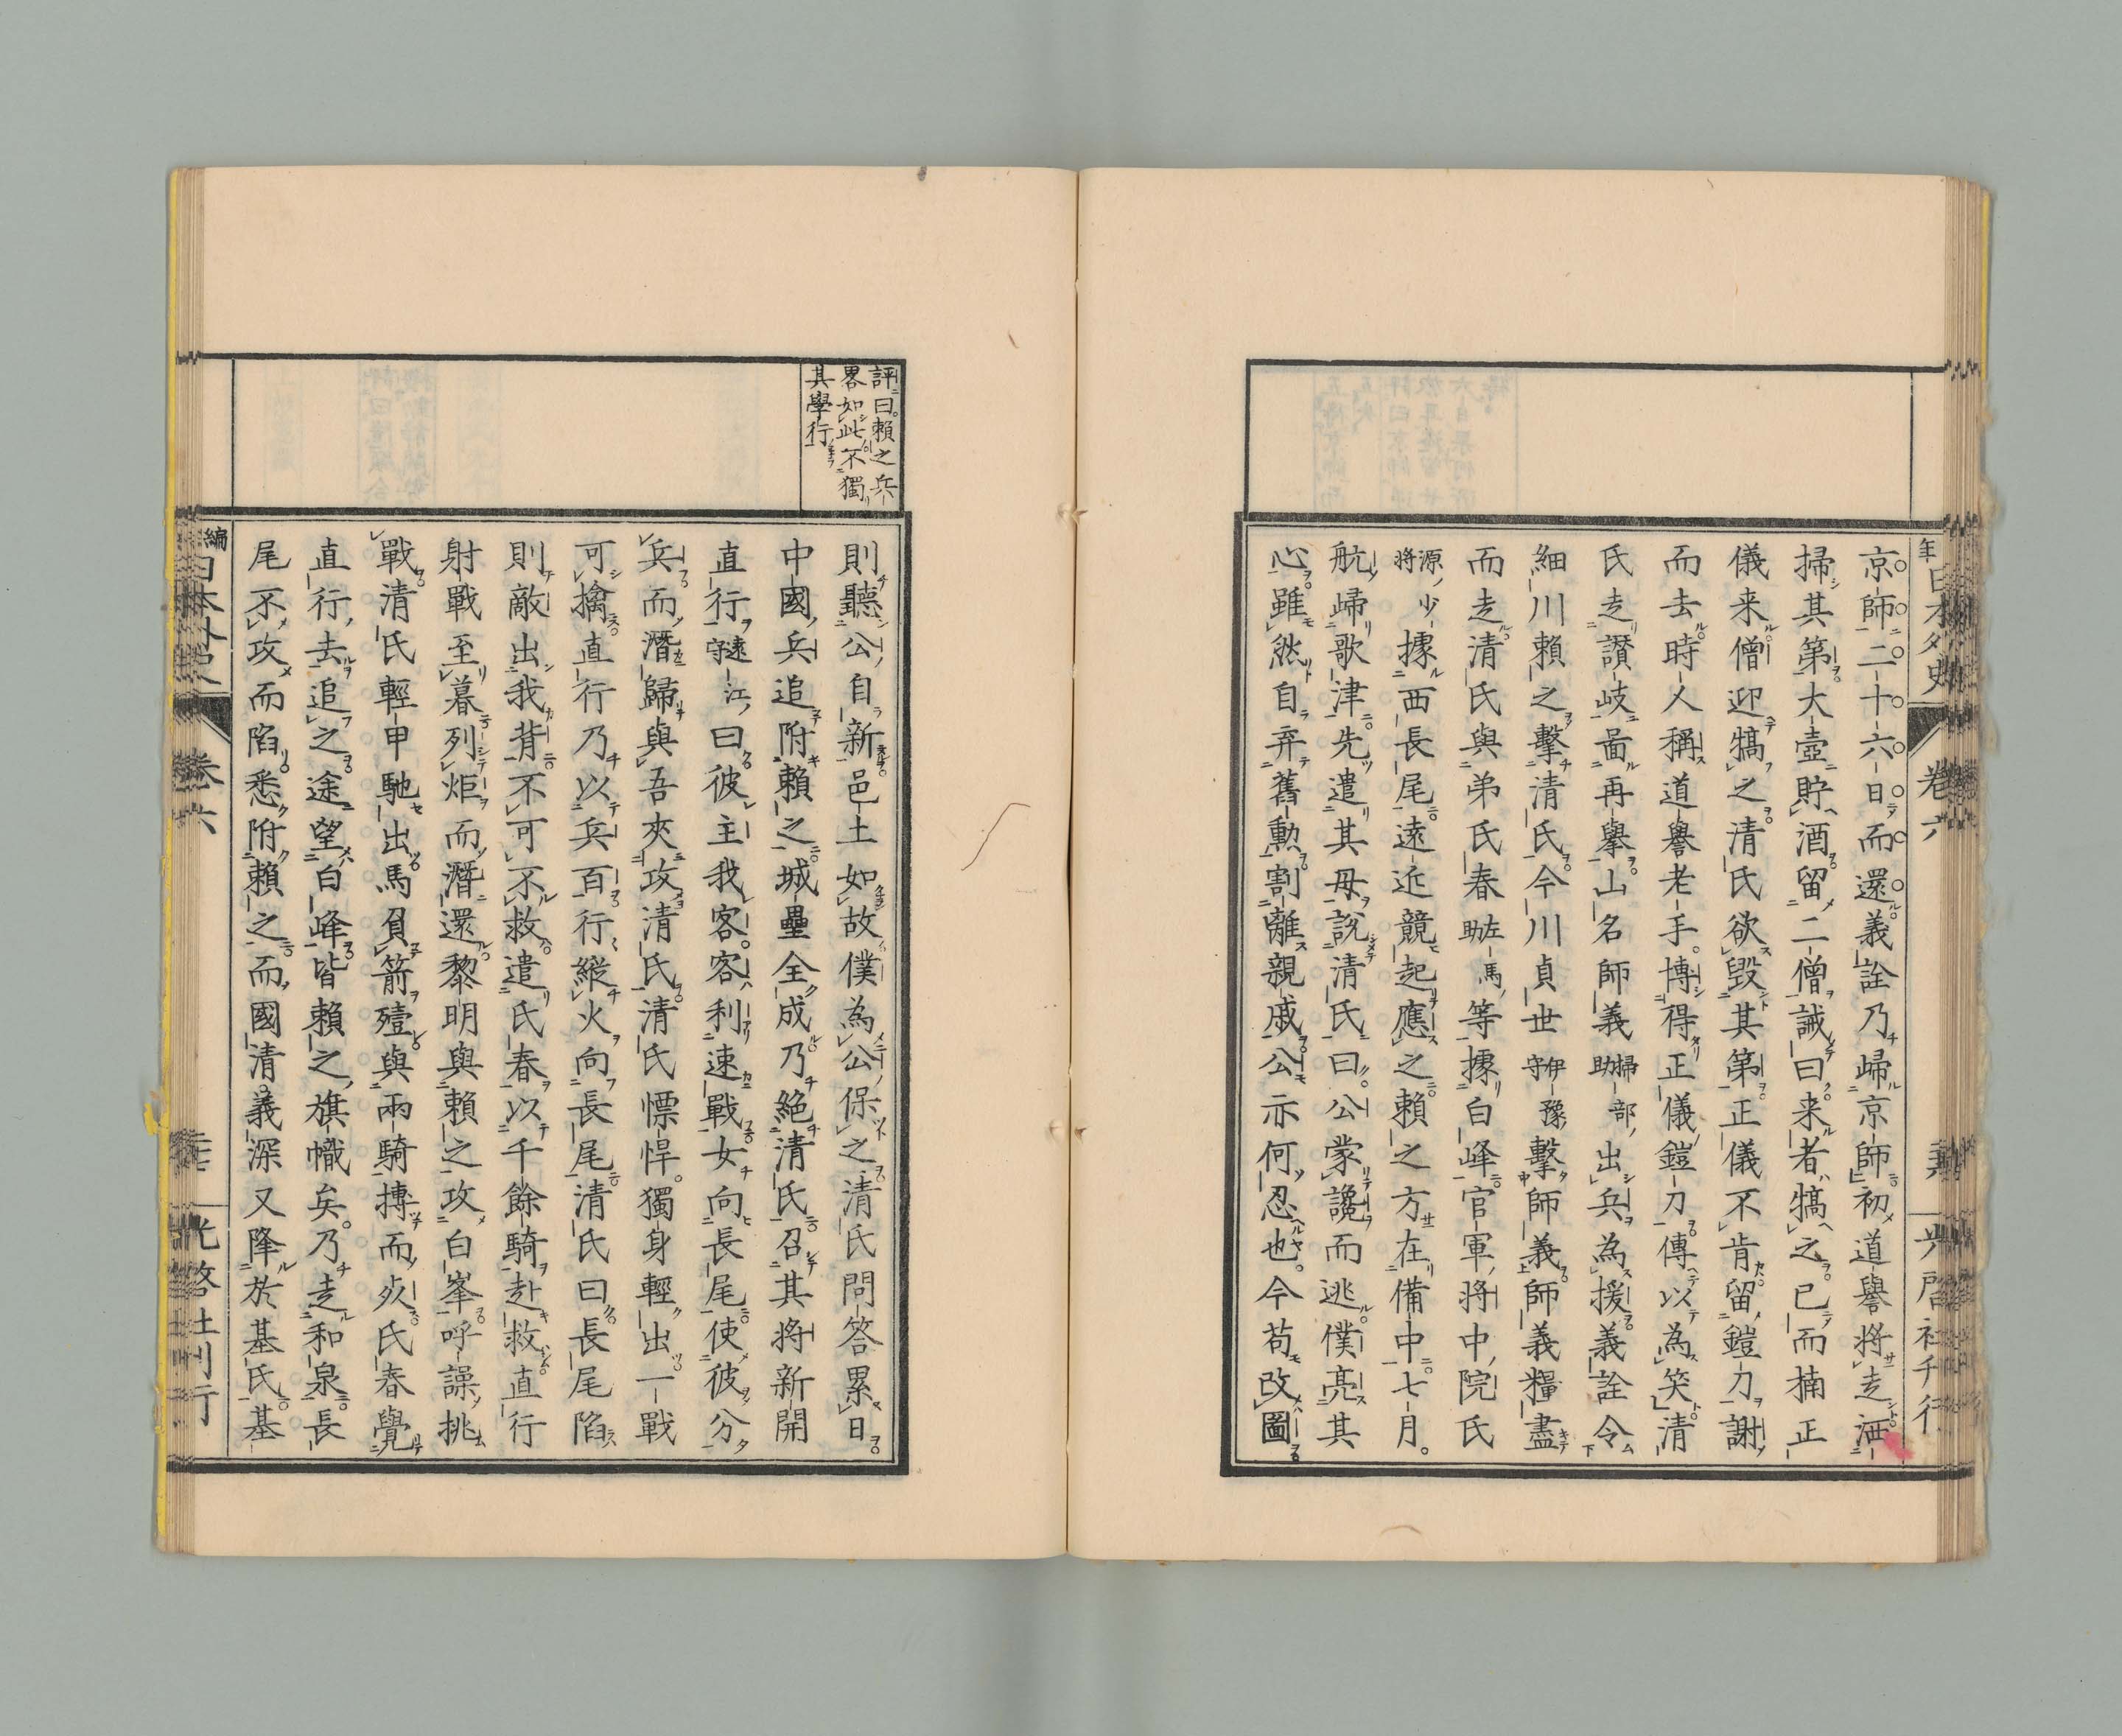 京師二十六日而還義詮乃歸京師初道譽將走洒
掃其第大壺貯酒留二僧誡曰来者犒之已而楠正
儀来僧迎犒之清氏欲毀其第正儀不肯留鎧刀謝
而去時人稱道譽老手博得正儀鎧刀傳以為笑清
氏走讃岐啚再擧山名師義掃部助出兵為援義詮令
細川頼之擊清氏今川貞世伊豫守擊師義師義糧盡
而走清氏與弟氏春左馬助等據白峰官軍將中院氏
源少將據西長尾遠近競起應之賴之方在備中七月
航歸歌津先遣其母說清氏曰公蒙讒而逃僕亮其
心雖然自弃舊勳割離親戚公亦何忍也今苟改圖
評曰賴之兵
畧如此不獨
其學行
則聽公自新邑土如故僕為公保之清氏問答累日
中國兵追附賴之城壘全成乃絶清氏召其將新開
直行遠江守曰彼主我客客利速戰女向長尾使彼分
兵而潛歸與吾夾攻清氏清氏慓悍獨身輕出一戰
可擒直行乃以兵百行縱火向長尾清氏曰長尾陷
則敵出我背不可不救遣氏春以千餘騎赴救直行
射戰至暮列炬而潛還黎明與賴之攻白峯呼譟挑
戰清氏輕甲馳出馬負箭殪與兩騎搏而死氏春覺
直行去追之途望白峰皆賴之旗幟矣乃走和泉長
尾不攻而陷悉附賴之而國清義深又降於基氏基
卷六